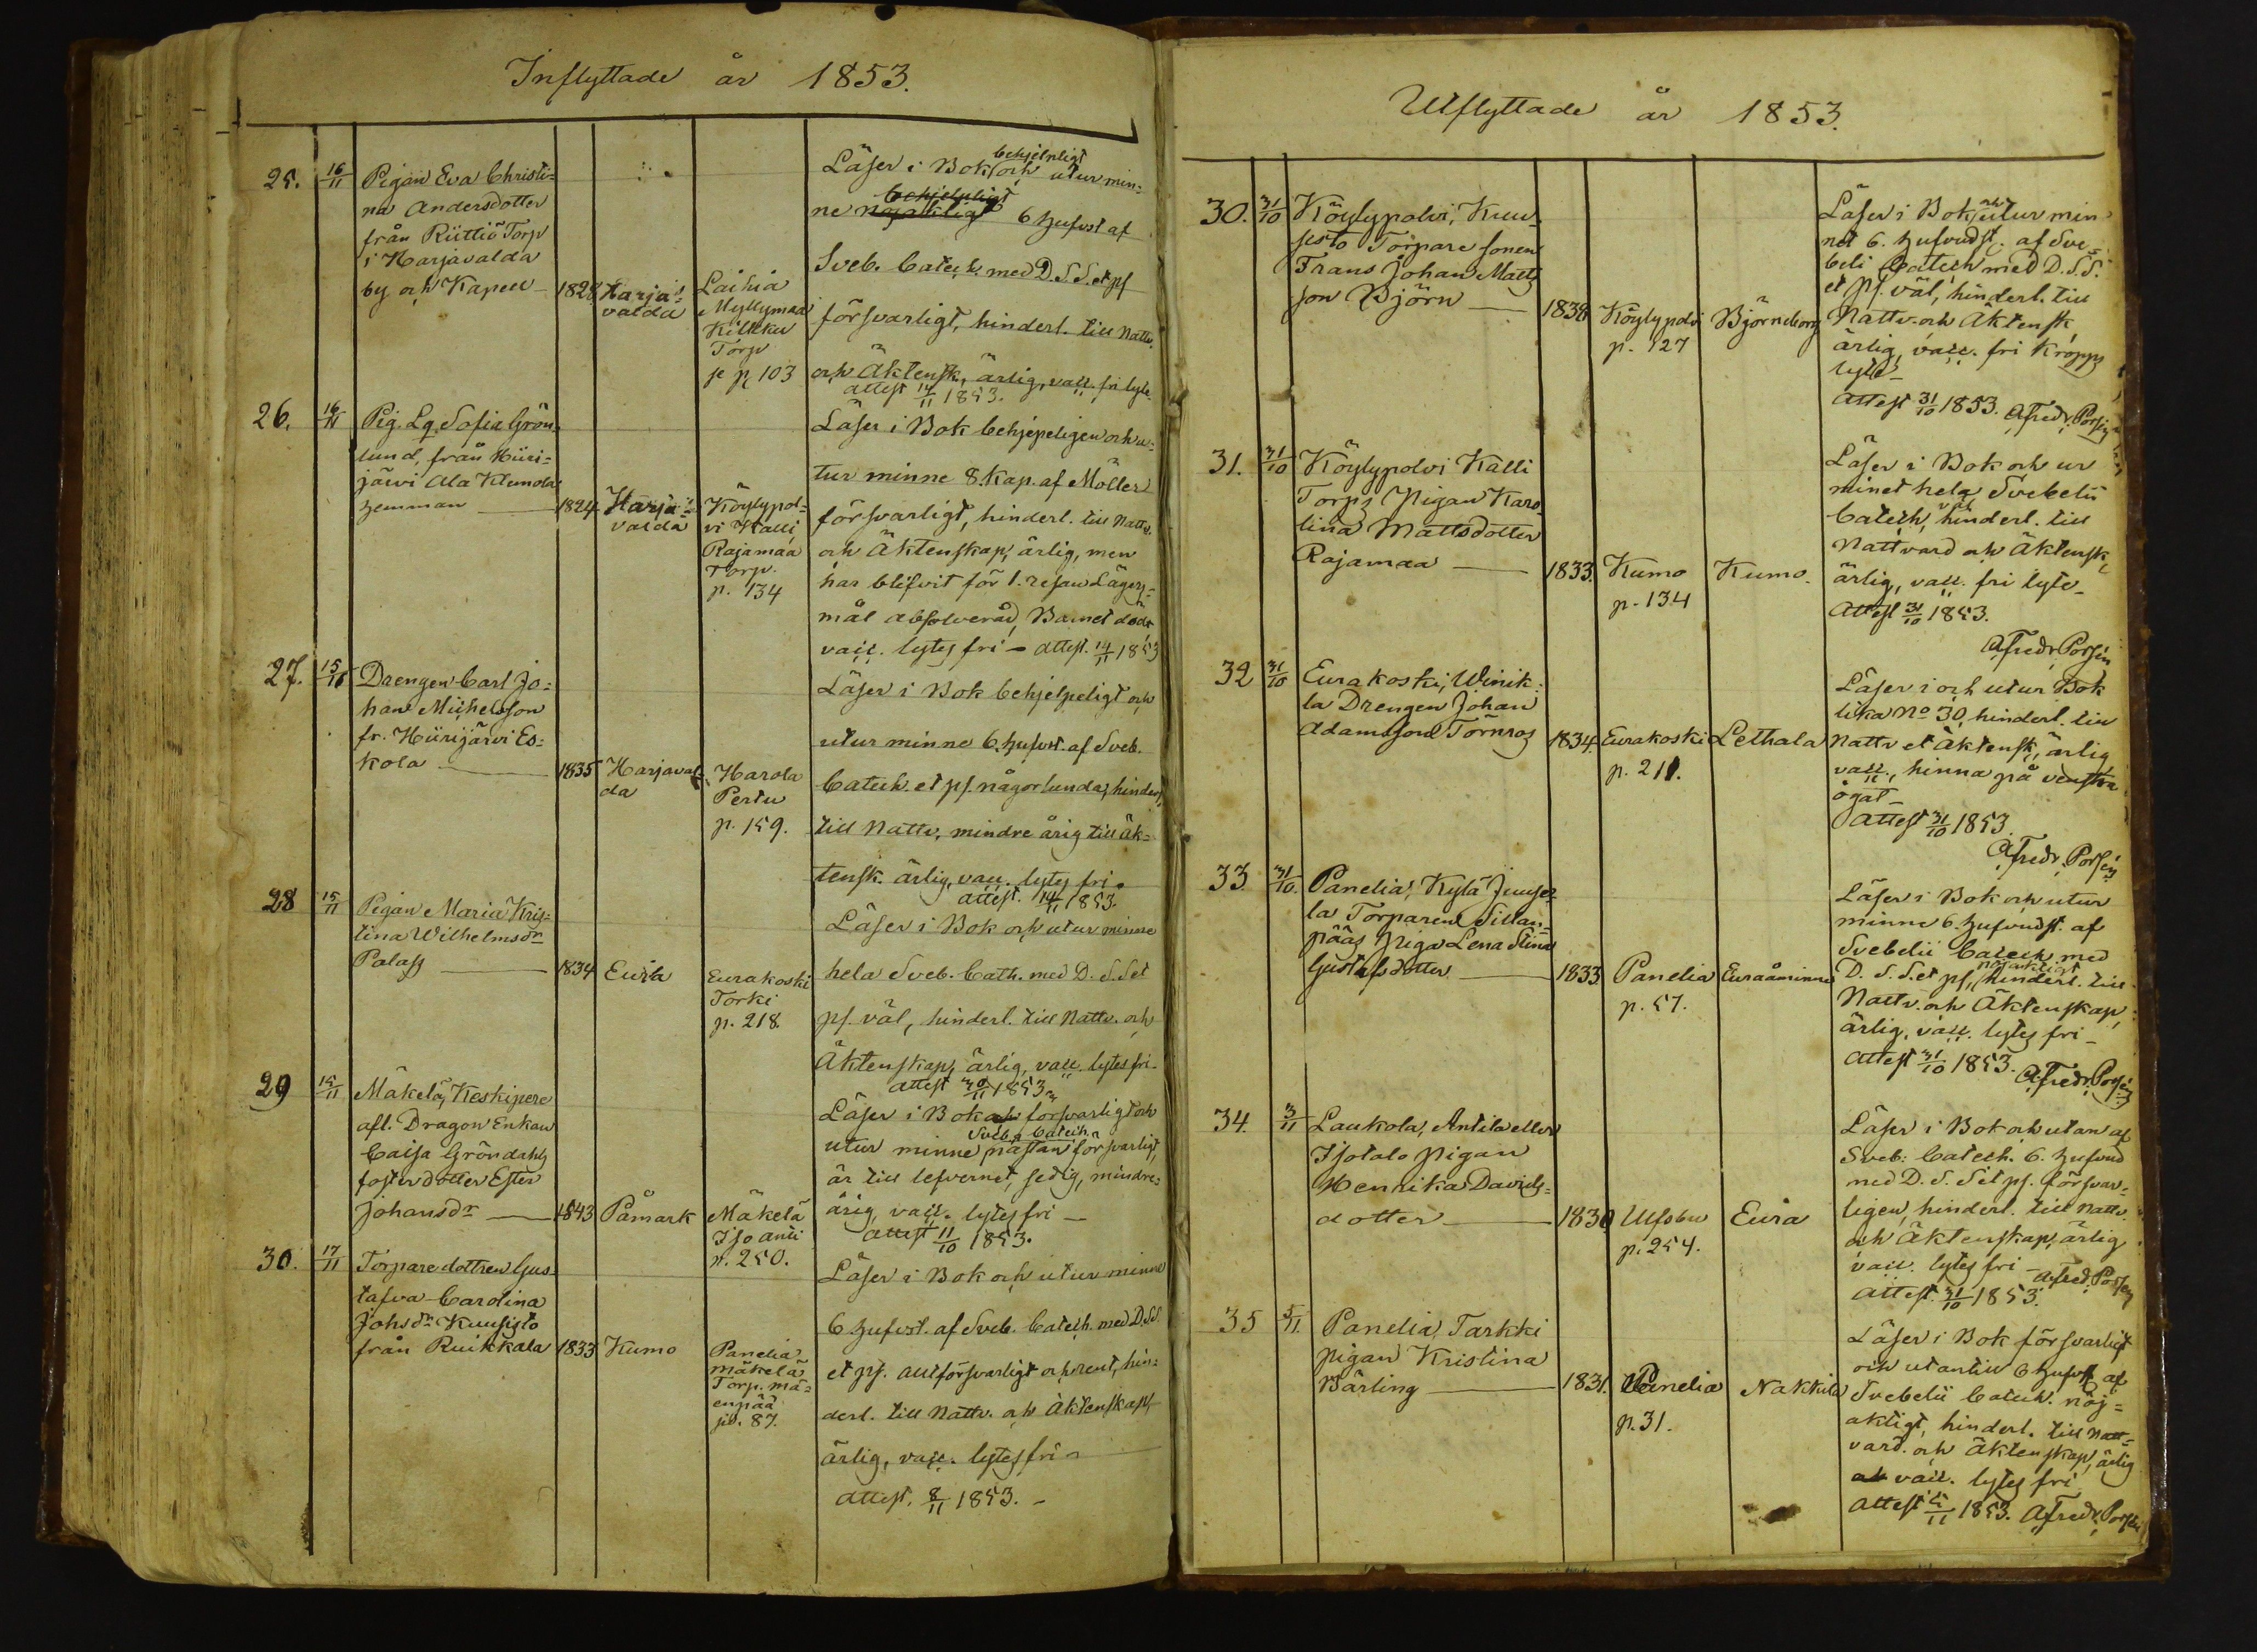 Inflyttade år 1853.
25. 16/11 Pigan Eva Christi=
na Andersdotter
från Riittiö Torp
i Harjavalda
by och Kapell 1828 Harja=
valda
Laihia
Myllymaa
Kilkku
Torp
se p 103
Läser i Bok och behjelpligt utur min=
ne nöjaktligt behjelpligt 6 hufvst af
Sveb. Catech. med D.S.S. et ps
försvarligt, hinderl. till Nattv.
och Äktensk, ärlig, vacc. fri lyte.
attest 14/11 1853.
26. 16/11 Pig. Lq. Sofia Grön=
lund, från Hiiri=
järvi Ala Klemola
hemman 1824 Harja=
valda
Köylypol=
vi Kalli
Rajamaa
Torp.
p. 134
Läser i Bok behjepeligen och u=
tur minne 8. Kap. af Möller
försvarligt, hinderl. till Nattv.
och Äktenskap, ärlig, men
har blifvit för 1. resan Lägers=
mål absolverad, Barnet dödt
vacc. lytes fri - attest. 14/11 1853
27. 15/11 Drengen Carl Jo=
han Michelsson
fr. Hiirijärvi Es=
kola 1835 Harjaval=
da
Harola
Pertu
p. 159.
Läser i Bok behjelpeligt och
utur minne 6. hufvst. af Sveb.
Catech. et ps. någorlunda, hinderl.
till Nattv. mindre årig till äk=
tensk. ärlig, vacc. lytes fri.
attest. 14/11 1853.
28 15/11 Pigan Maria Kris=
tina Wilhelmsdr
Palass 1834 Eura
Eurakoski
Torki
p. 218.
Läser i Bok och utur minne
hela Sveb. Cath. med D. S. S et
ps. väl, hinderl. till Nattv. och
Äktenskap, ärlig, vacc. lytes fri.
attest 1853
29 15/11 Mäkelä, Keskipere
afl. Dragon Enkan
Caisa Gröndahls
fosterdotter Ester
Johansdr 1843 Påmark
Mäkelä
Iso anti
p. 250.
Läser i Bok försvarligt och
utur minne Sveb. Catech. nästan försvarligt,
är till lefvernet sedig, mindre=
årig, vacc. lytes fri
attest 11/10 1853.
30. 17/11 Torparedottren Gus=
tafva Carolina
Johsdr Kuusisto
från Ruikkala 1833 Kumo
Panelia
mäkelä
Torp. mä=
enpää
p. 87.
Läser i Bok och utur minne
6 hufvst. af Sveb. Catech. med D.S.S.
et ps. allt försvarligt och rent, hin=
derl. till Nattv. och Äktenskap,
ärlig, vacc. lytes fri
attest. 8/11 1853.
Utflyttade år 1853.
30. 31/10 Köylypolvi, Kuu=
sisto Torpare sonen
Frans Johan Matts
son Björn 1838 Köylypolvi
p. 127
Björneborg
Läser i Bok och utur min
net 6. hufvudst. af Sve=
beli Catech med D.S.S.
et ps. väl, hinderl. till
Nattv. och Äktensk,
ärlig, vacc. fri kropps
lyte
attest 31/10 1853. A Fredr. Porsén
31. 31/10 Köylypolvi Kalli
Torps Pigan Karo
lina Mattsdotter
Rajamaa 1833. Kumo
p. 134
Kumo.
Läser i Bok och ur
minet hela Svebelii
Catech, hinderl. till
Nattvard och Äktensk,
ärlig, vacc. fri lyte
Attest 31/10 1853.
A Fredr Porsén
32 31/10 Eurakoski, Winik=
la Drengen Johan
Adamsson Törnros 1834. Eurakoski
p. 211.
Lethala
Läser i och utur Bok
lika No 30, hinderl. till
Nattv et Äktensk, ärlig
vacc., hinna på venstra
ögat
attest 31/10 1853.
A Fredr. Porsén
33 31/10 Panelia, Kylä Junse=
la Torparen Sillan=
pääs piga Lena Stina
Gustafsdotter 1833 Panelia
p. 57.
Euraåminne
Läser i Bok och utur
minne 6. hufvudst. af
Svebelii Catech, med
D. S. S. et ps, nöjaktligt hinderl. till
Nattv. och Äktenskap,
ärlig, vacc. lytes fri
attest 31/10 1853. A Fredr. Porsén
34. 3/11 Laukola, Antila eller
Isotalo pigan
Henrika Davids=
dotter 1830 Ulfsbu
p. 254.
Eura
Läser i Bok och utan af
Sveb. Catech. 6. hufvud
med D. S. S et ps. försvar=
ligen, hinderl. till Nattv
och Äktenskap, ärlig
vacc. lytes fri
attest. 31/10 1853. A Fred. Porsén
35 5/11. Panelia, Tarkki
pigan Kristina
Bärling 1831. Panelia
p. 31.
Nakkila
Läser i Bok försvarligt
och utantill 6 hufvst af
Svebelii Catech. nöj=
aktigt, hinderl. till Natt=
vard. och Äktenskap, ärlig
vacc. lytes fri
attest 5/11 1853. A Fredr. Porsén